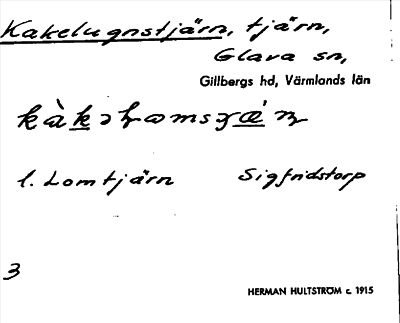 Kakelugnstjärn, tjärn,
Glava sn,
Gillbergs hd, Värmlands län
l. Lomtjärn Sigfridstorp
3
HERMAN HULTSTRÖM c. 1915